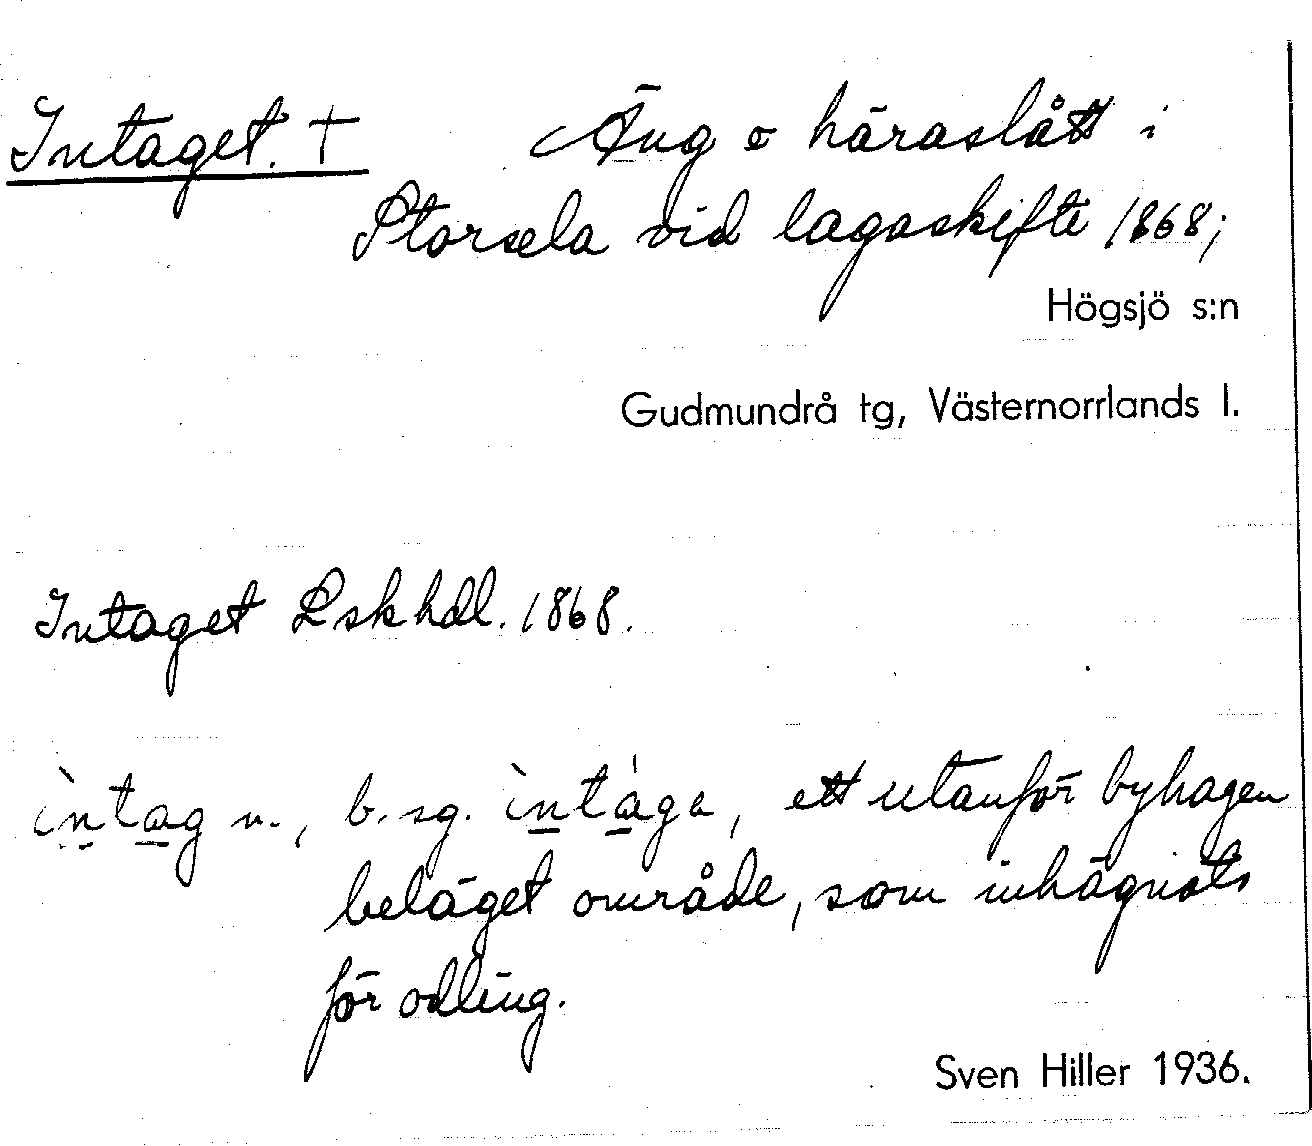 Intaget. † Äng o häraslått i
Storsela vid lagaskifte 1868;
Högsjö s:n
Gudmundrå tg, Västernorrlands l.
Intaget Lskhdl. 1868.
ìntag n., b. sg. ìntága, ett utanför byhagen
beläget område, som inhägnats
för odling.
Sven Hiller 1936.